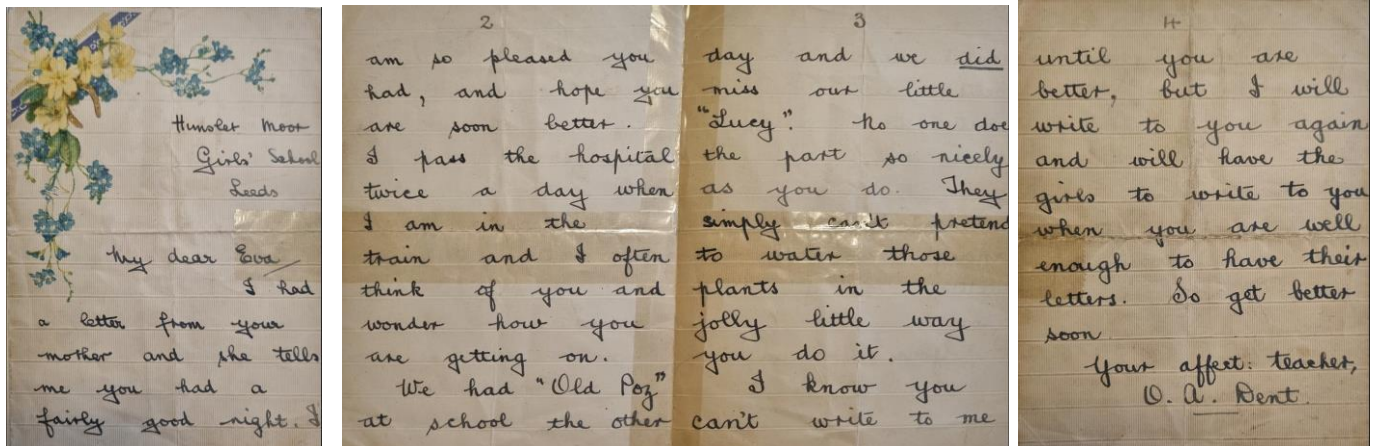 Hunslet Moor
Girls' School
Leeds
My dear Eva
I had
a letter from your
mother and she tells
me you had a
fairly good night. I
2
am so pleased you
had, and hope you
are soon better.
I pass the hospital
twice a day when
I am in the
train and I often
think of you and
wonder how you
are getting on.
We had "Old Poz"
at school the other
3
day and we did
miss our little
"Lucy". No one doe
the part so nicely
as you do. They
simply can't pretend
to water those
plants in the
jolly little way
you do it.
I know you
can't write to me
4
until you are
better, but I will
write to you again
and will have the
girls to write to you
when you are well
enough to have their
letters. So get better
soon
Your affect: teacher,
O. A. Dent.